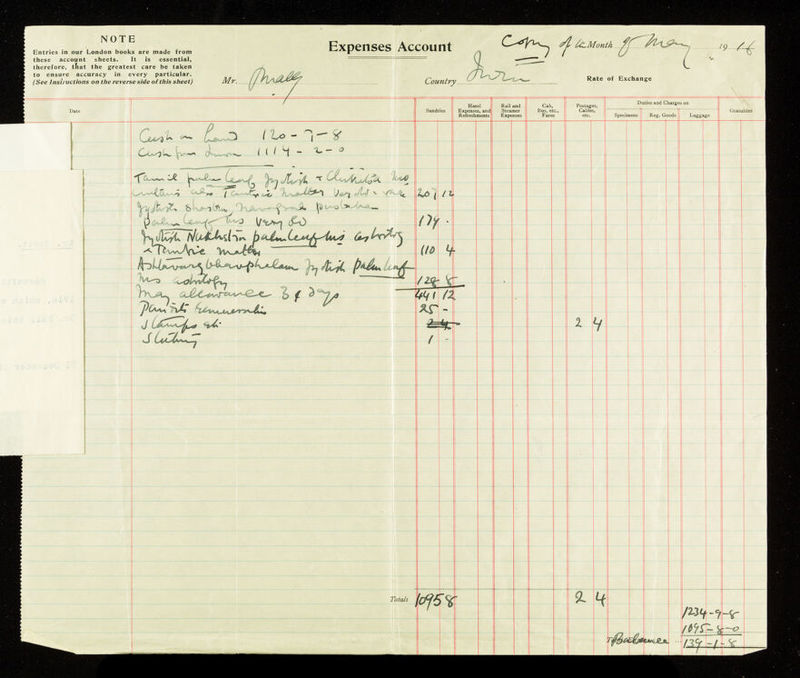 NOTE
Entries in our London books are made from
these account sheets. It is essential,
therefore, that the greatest care be taken
to ensure accuracy in every particular.
(See Instructions on the reverse side of this sheet)
Expenses Account
Copy of the Month of May 19 16
Mr.
Country
Rate of Exchange
Date
Sundries
Hotel Expenses, and Refreshments
Rail and Steamer Expenses
Cab, Bus, etc., Fares
Postages, Cables, etc.
Duties and Charges on
Specimens
Reg. Goods
Luggage
Gratuities
Cash on hand 120 - 7 - 8
Cash from 1114 - 2 - 0
Tamil palm leaf Jyotish + Chikitsa Mss
also Tantric matter very old 207 12
Jyotish Shastra
palm leaf Mss very old 174 -
Jyotish Nakshatra palm leaf Mss astrology
+ Tantric matter 110 4
Ashtavarg bhavphalam Jyotish palm leaf
Mss astrology 128 8
May allowance days 441 12
Pandits remuneration 25 -
Stamps etc 2 4 2 4
1 -
Totals 1095 8 2 4
1234-9-8
1095-8-0
To Balance 139-1-8